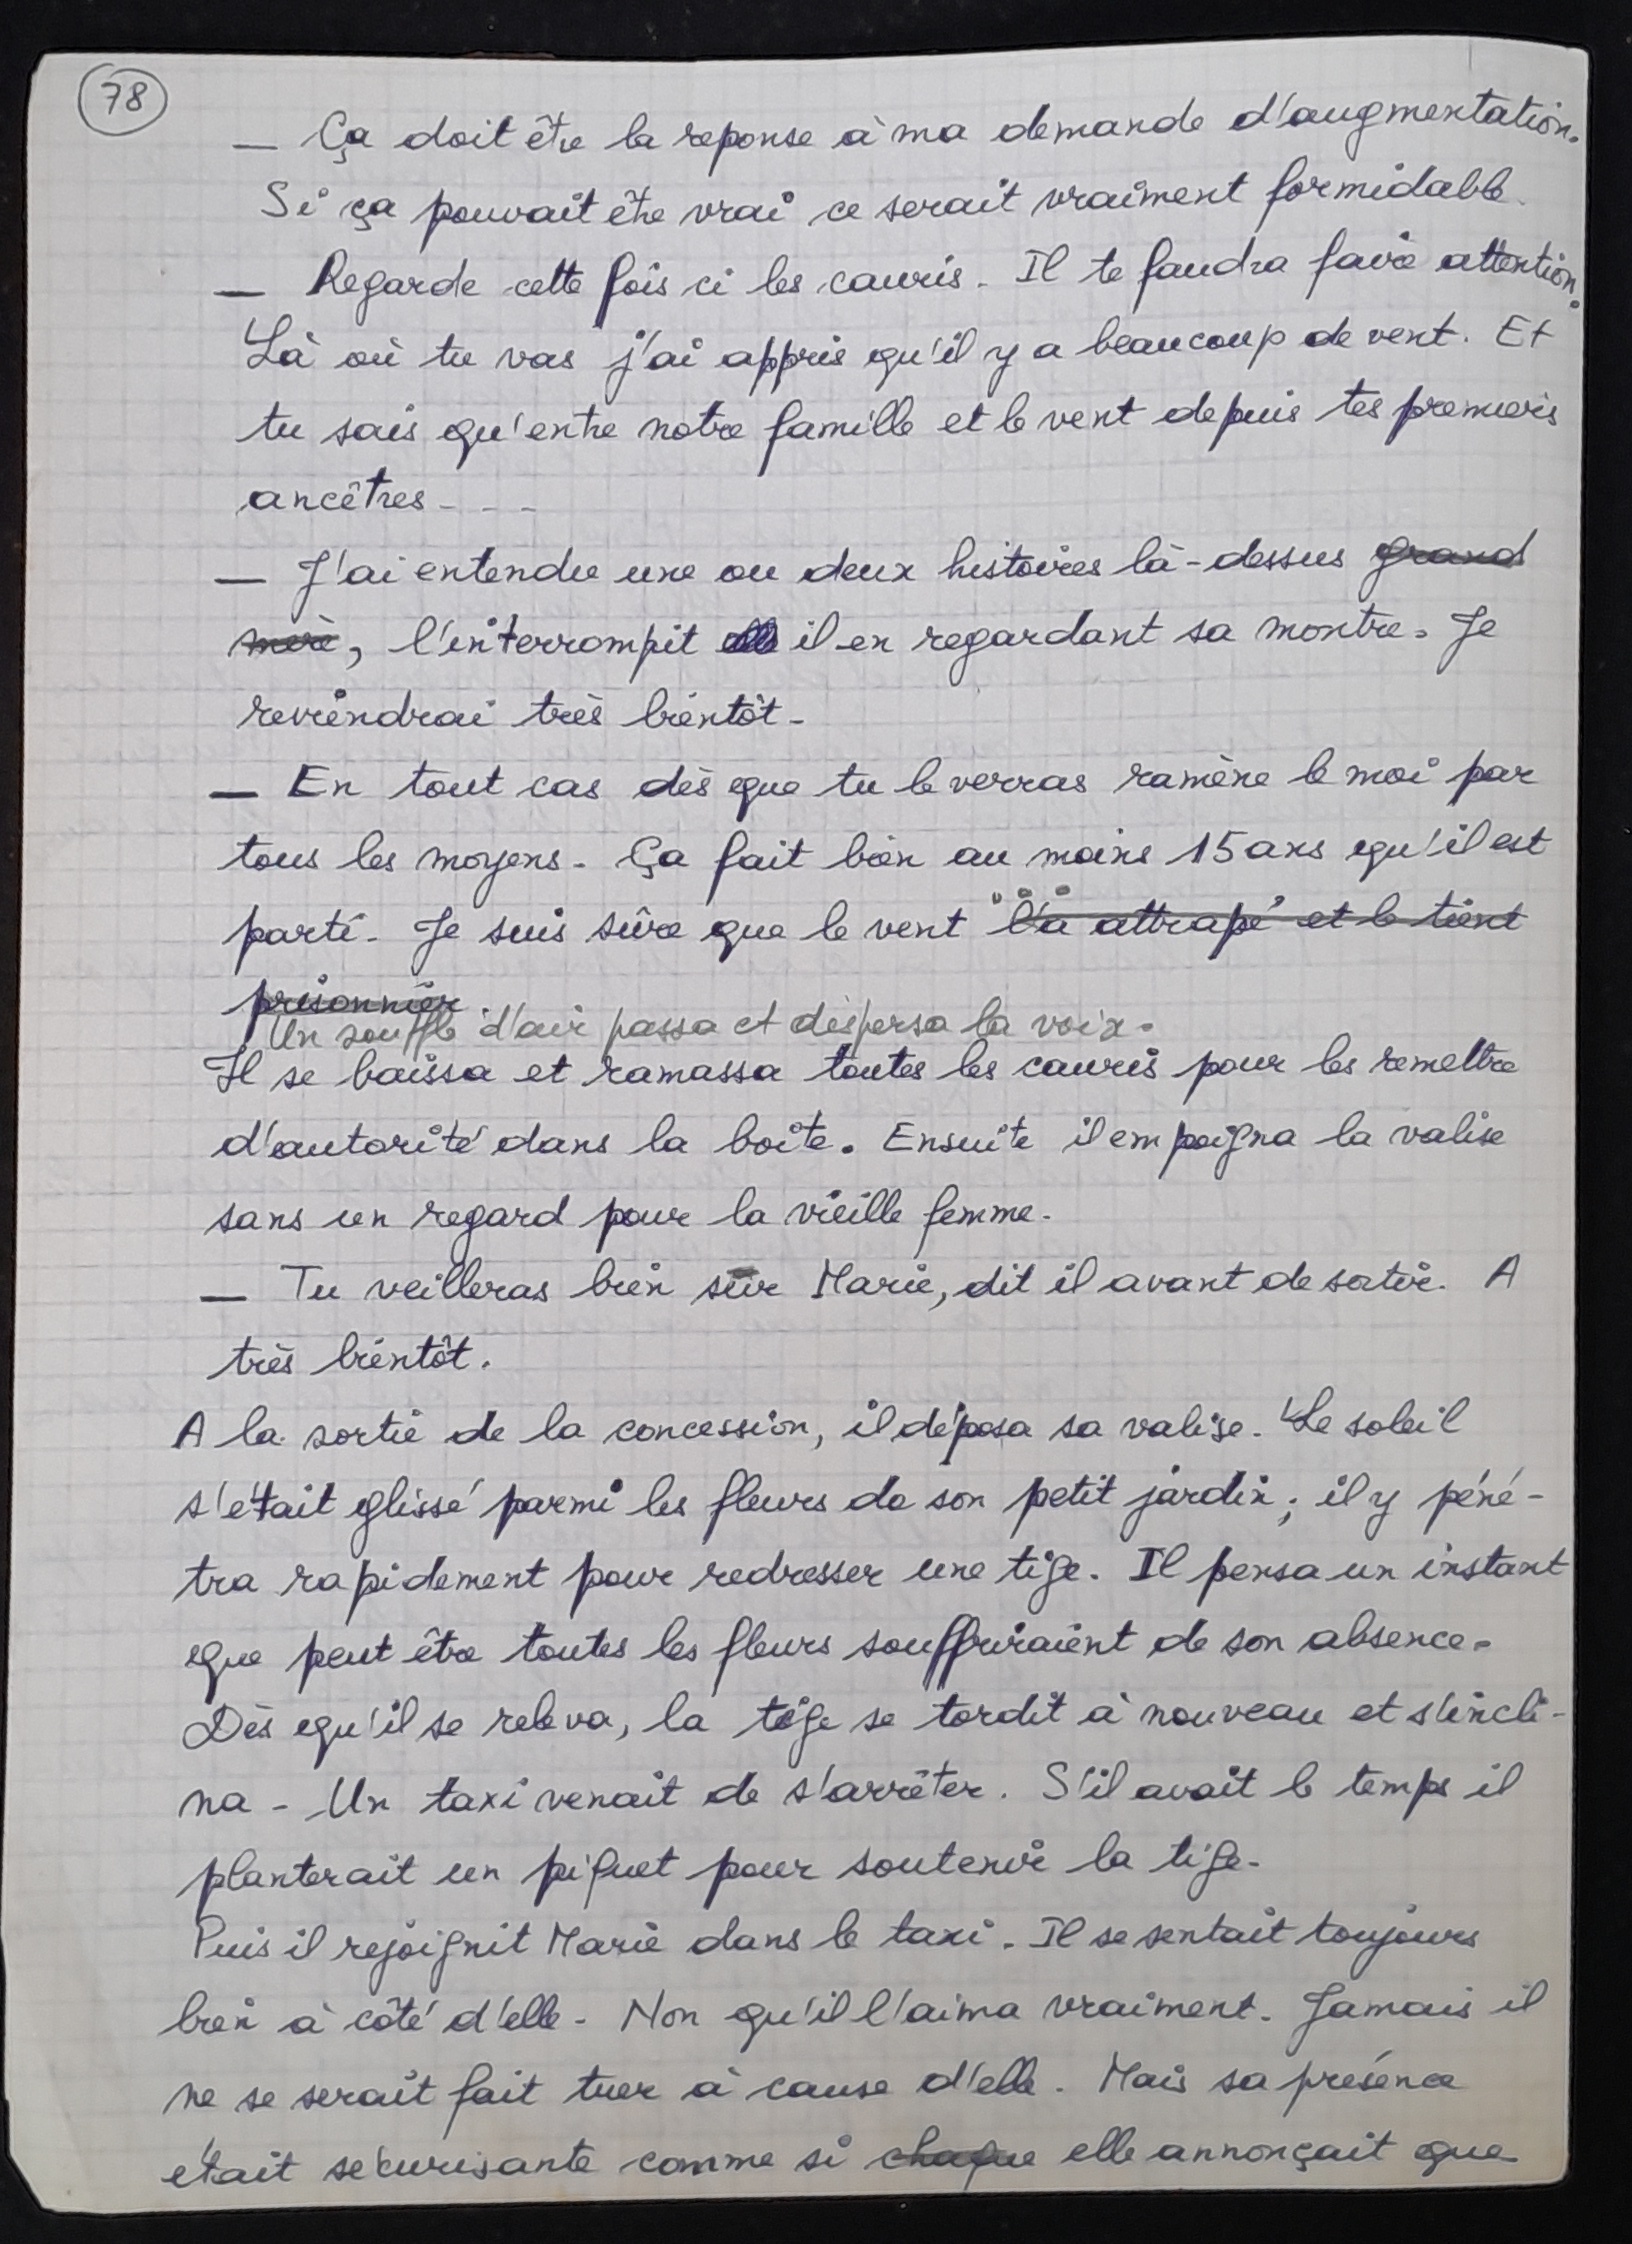 78
— Ça doit être la reponse à ma demande d'augmentation.
Si ça pouvait être vrai ce serait vraiment formidable.
— Regarde cette fois ci les cauris. Il te faudra faire attention.
Là où tu vas j'ai appris qu'il y a beaucoup de vent. Et
tu sais qu'entre notre famille et le vent depuis tes premiers
ancêtres - - -
— J'ai entendu une ou deux histoires là-dessus grand
mère, l'interrompit il en regardant sa montre. Je
reviendrai très bientôt.
— En tout cas dès que tu le verras ramène le moi par
tous les moyens. Ça fait bien au moins 15 ans qu'il est
parti. Je suis sûre que le vent ... l'a attrapé et le tient
prisonnier
Un souffle d'air passa et dispersa la voix.
Il se baissa et ramassa toutes les cauris pour les remettre
d'autorité dans la boîte. Ensuite il empoigna la valise
sans un regard pour la vieille femme.
— Tu veilleras bien sur Marie, dit il avant de sortir. A
très bientôt.
A la sortie de la concession, il déposa sa valise. Le soleil
s'était glissé parmi les fleurs de son petit jardin ; il y péné-
tra rapidement pour redresser une tige. Il pensa un instant
que peut être toutes les fleurs souffriraient de son absence.
Dès qu'il se releva, la tige se tordit à nouveau et s'incli-
na - Un taxi venait de s'arrêter. S'il avait le temps il
planterait un piquet pour soutenir la tige.
Puis il rejoignit Marie dans le taxi. Il se sentait toujours
bien à côté d'elle. Non qu'il l'aima vraiment. Jamais il
ne se serait fait tuer à cause d'elle. Mais sa présence
était sécurisante comme si chaque elle annonçait que